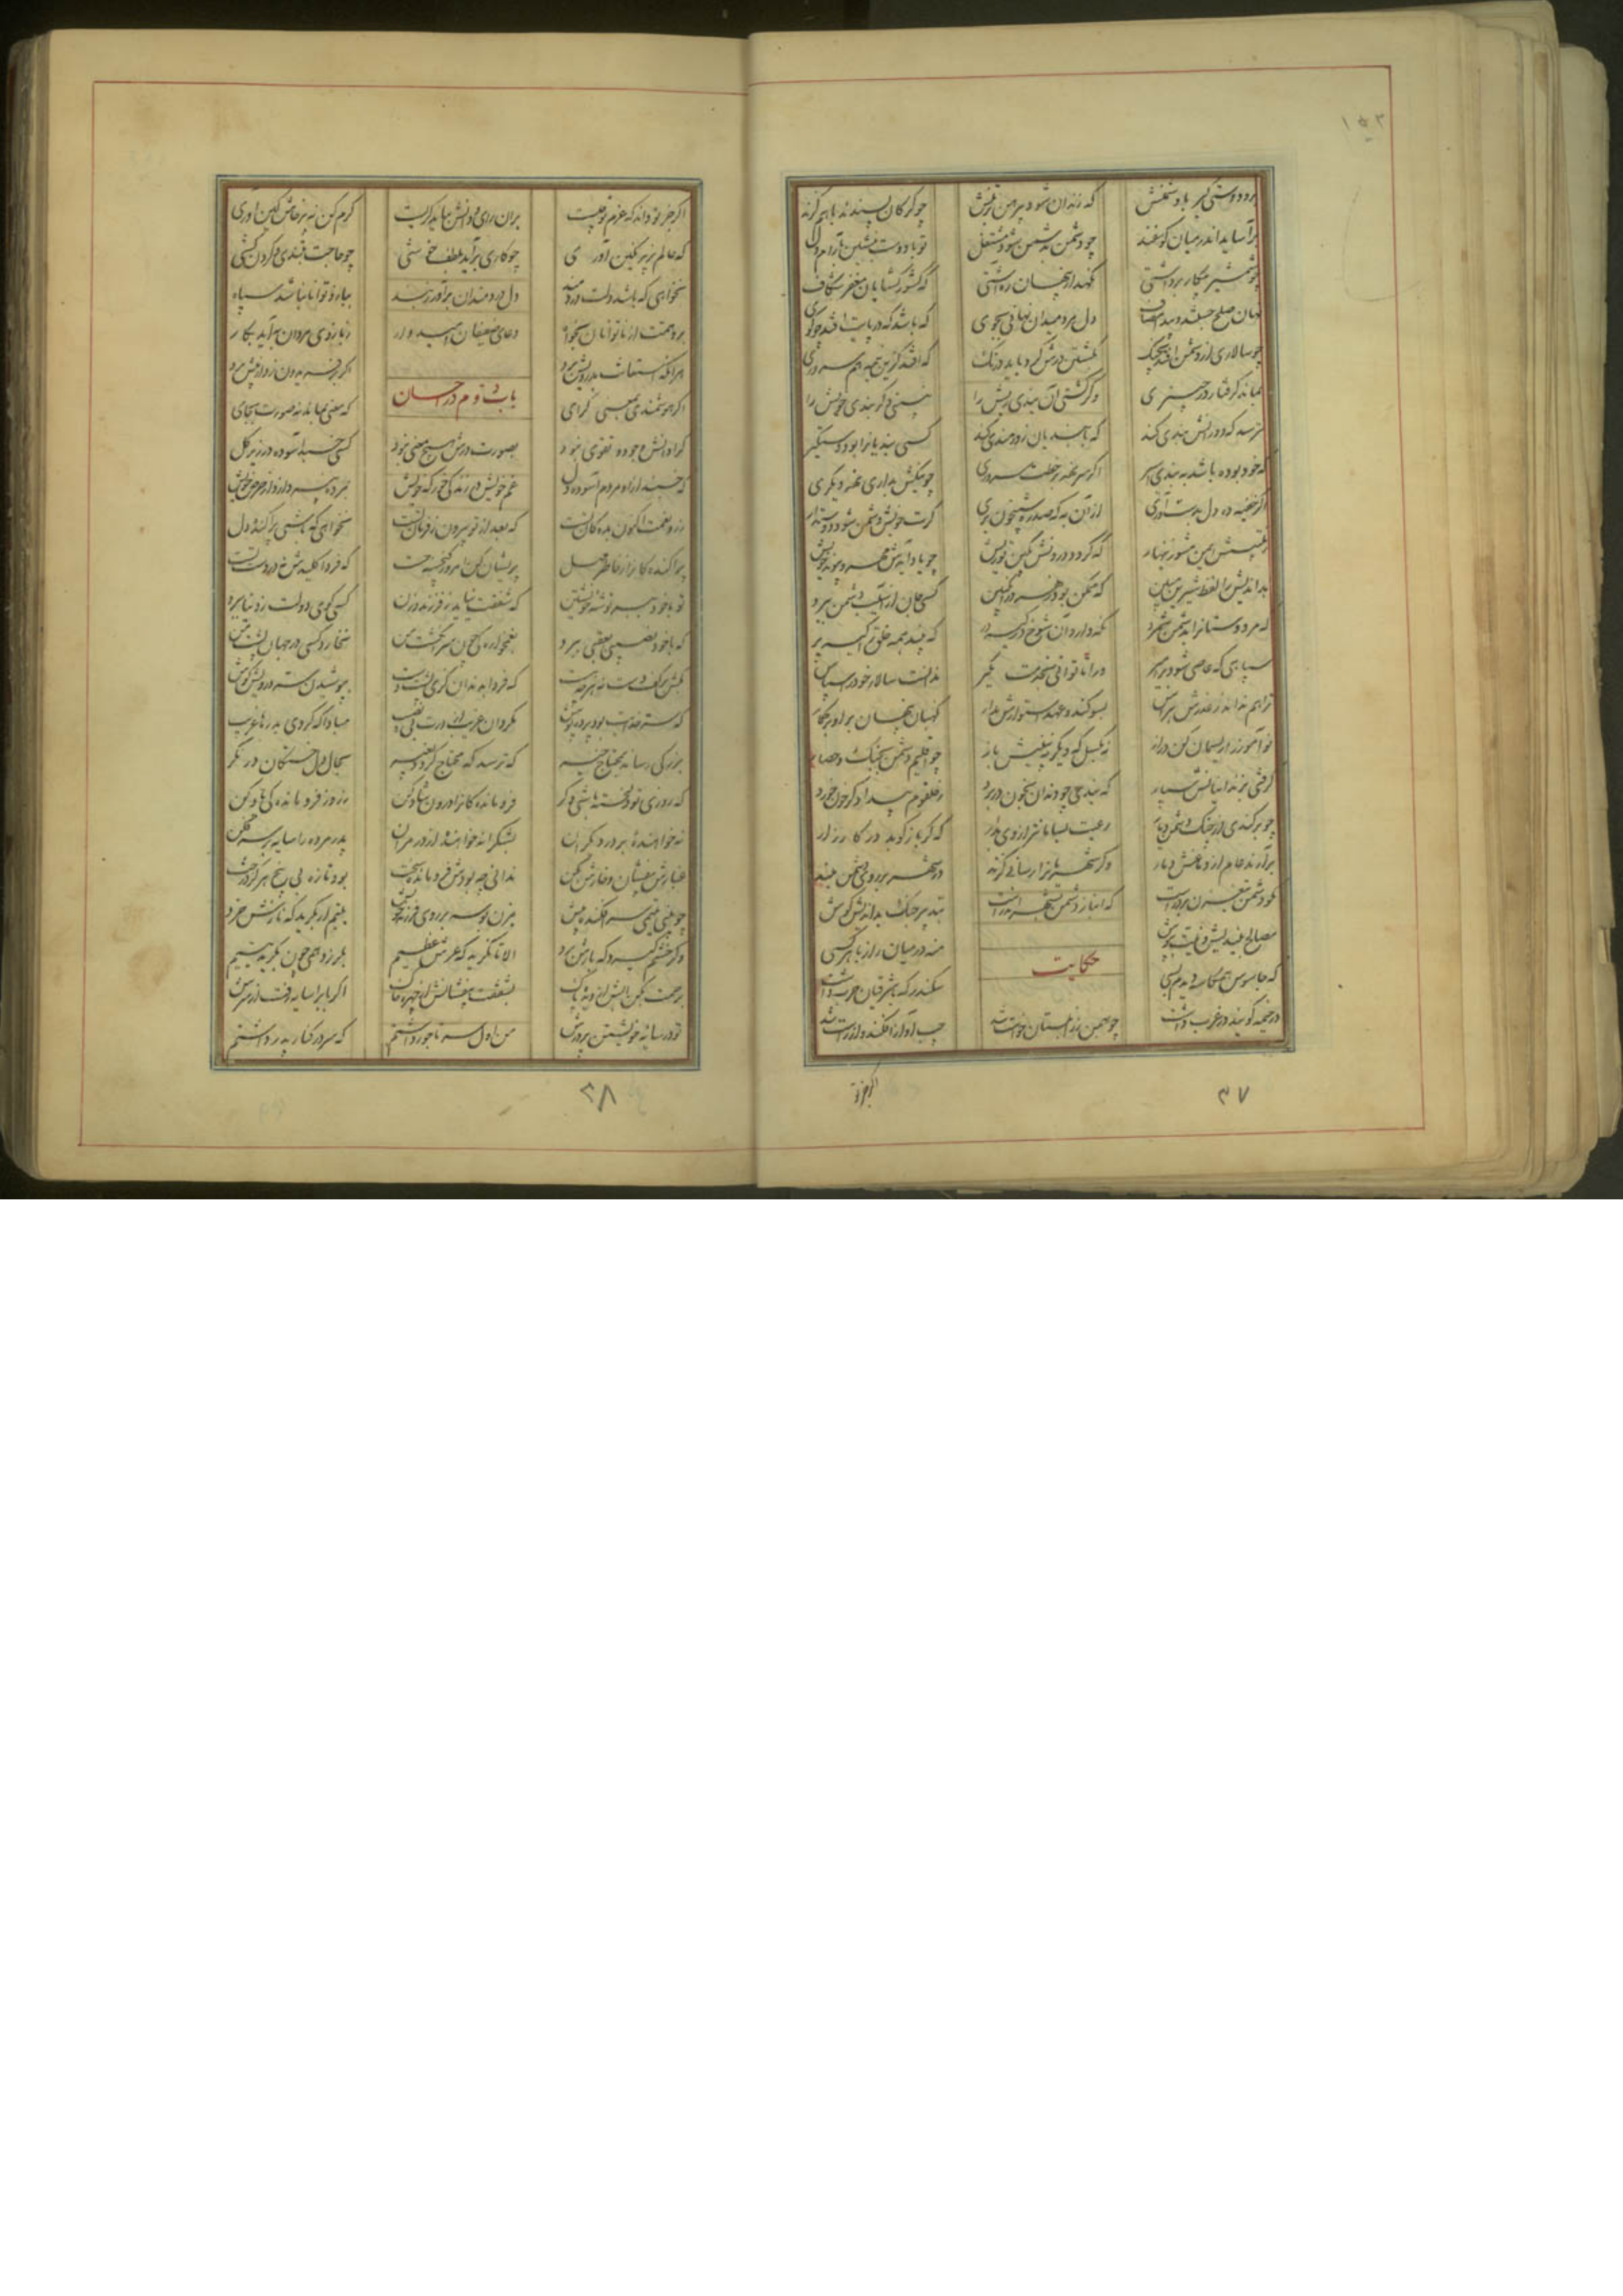 برو دوستی گیر با دشمنش
که زندان شود پیرهن بر تنش
چو گرگان پسندند با هم گزند
برآساید اندر میان گوسفند
چو دشمن بدشمن شود مشتغل
تو با دوست بنشین بآرام دل
چو شمشیر پیکار برداشتی
نگهدار پنهان ره آشتی
که کشور کشایان مغفر شکاف
نهان صلح جستند و پیدا مصاف
دل مرد میدان نهانی بجوی
که باشد که در پایت افتد چو گوی
چو سالاری از دشمن افتد بچنگ
بکشتن درش کرد باید درنگ
که افتد کزین نیمه هم سروری
بماند گرفتار در چنبری
وگر کشتی آن بندی ریش را
نبینی دگر بندی خویش را
نترسد که دورانش بندی کند
که با بندیان زورمندی کند
کسی بندیانرا بود دستگیر
که خود بوده باشد ببندی اسیر
اگر سر نهد بر خطت سروری
چو نیکش بداری نهد دیگری
اگر خفیه ده دل بدست آوری
از آن به که صد ره شبیخون بری
گرت خویش دشمن شود دوستدار
ز تلبیسش ایمن مشو زینهار
که گردد درونش بکین تو ریش
چو یاد آیدش مهر و پیوند خویش
بداندیش را لفظ شیرین مبین
که ممکن بود زهر در انگبین
کسی جان از آسیب دشمن ببرد
که مر دوستانرا بدشمن شمرد
نگه دارد آن شوخ در کیسه در
که بیند همه خلق را کیسه بر
سپاهی که عاصی شود بر امیر
ورا تا توانی بخدمت مگیر
ندانست سالار خود را سپاس
ترا هم نداند ز غدرش هراس
بسوگند و عهد استوارش مدار
نگهبان پنهان برو برگمار
نوآموز را ریسمان کن دراز
نه بگسل که دیگر نبینیش باز
چو اقلیم دشمن بجنگ و حصار
گرفتی بزندانیانش سپار
که بندی چو دندان بخون در برد
ز حلقوم بیدادگر خون خورد
چو برکندی از چنگ دشمن دیار
رعیت بسامانتر از وی بدار
که گر باز کوبد در کارزار
برآرند عام از دماغش دمار
وگر شهریانرا رسانی گزند
در شهر بر روی دشمن مبند
مگو دشمن تیغ زن بر درست
که انباز دشمن بشهر اندرست
بتدبیر جنگ بداندیش کوش
مصالح بیندیش و نیت بپوش
منه در میان راز با هر کسی
که جاسوس همکاسه دیدم بسی
حکایت
سکندر که با شرقیان حرب داشت
در خیمه گویند در غرب داشت
چو بهمن بزابلستان خواست شد
چپ آوازه افکند و از راست شد
۳۷
اگر جز تو
اگر جز تو داند که عزم تو چیست
بران رای و دانش بباید گریست
کرم کن نه پرخاش و کین آوری
که عالم بزیر نگین آوری
چو کاری برآید بلطف و خوشی
چه حاجت بتندی و گردن کشی
نخواهی که باشد دلت دردمند
دل دردمندان برآور ز بند
ببازو توانا نباشد سپاه
برو همت از ناتوانان بخواه
دعای ضعیفان امیدوار
ز بازوی مردی به آید بکار
هر آنکه استعانت بدرویش برد
اگر بر فریدون زد از پیش برد
باب دوم در احسان
اگر هوشمندی بمعنی گرای
که معنی بماند نه صورت بجای
کرا دانش و جود و تقوی نبود
بصورت درش هیچ معنی نبود
کسی خسبد آسوده در زیر گل
که خسبند ازو مردم آسوده دل
غم خویش در زندگی خور که خویش
بمرده نپردازد از حرص خویش
زر و نعمت اکنون بده کان تست
که بعد از تو بیرون ز فرمان تست
نخواهی که باشی پراکنده دل
پراکنده گانرا ز خاطر مهل
پریشان کن امروز گنجینه چست
که فردا کلیدش نه در دست تست
تو با خود ببر توشه خویشتن
که شفقت نیاید ز فرزند و زن
کسی گوی دولت ز دنیا برد
که با خود نصیبی بعقبی برد
بغمخوارگی چون سر انگشت من
نخارد کسی در جهان پشت من
مکن بر کف دست نه هر چه هست
که فردا بدندان گزی پشت دست
بپوشیدن ستر درویش کوش
که ستر خدایت بود پرده پوش
مگردان غریب از درت بی نصیب
مبادا که گردی بدرها غریب
بزرگی رساند بمحتاج خیر
که ترسد که محتاج گردد بغیر
بحال دل خستگان در نگر
که روزی تو دلخسته باشی مگر
فرومانده گانرا درون شاد کن
ز روز فروماندگی یاد کن
نه خواهنده بر در دیگران
بشکرانه خواهنده از در مران
پدر مرده را سایه بر سر فکن
غبارش بیفشان و خارش بکن
ندانی چه بودش فرومانده سخت
بود تازه بی بیخ هرگز درخت
چو بینی یتیمی سر افکنده پیش
مزن بوسه بر روی فرزند خویش
یتیم ار بگرید که نازش خرد
وگر خشم گیرد که بارش برد
الا تا نگرید که عرش عظیم
بلرزد همی چون بگرید یتیم
برحمت بکن آبش از دیده پاک
بشفقت بیفشانش از چهره خاک
اگر بابرا سایه رفت از سرش
تو در سایه خویشتن پرورش
من اول سر تاجور داشتم
که سر در کنار پدر داشتم
۳۸